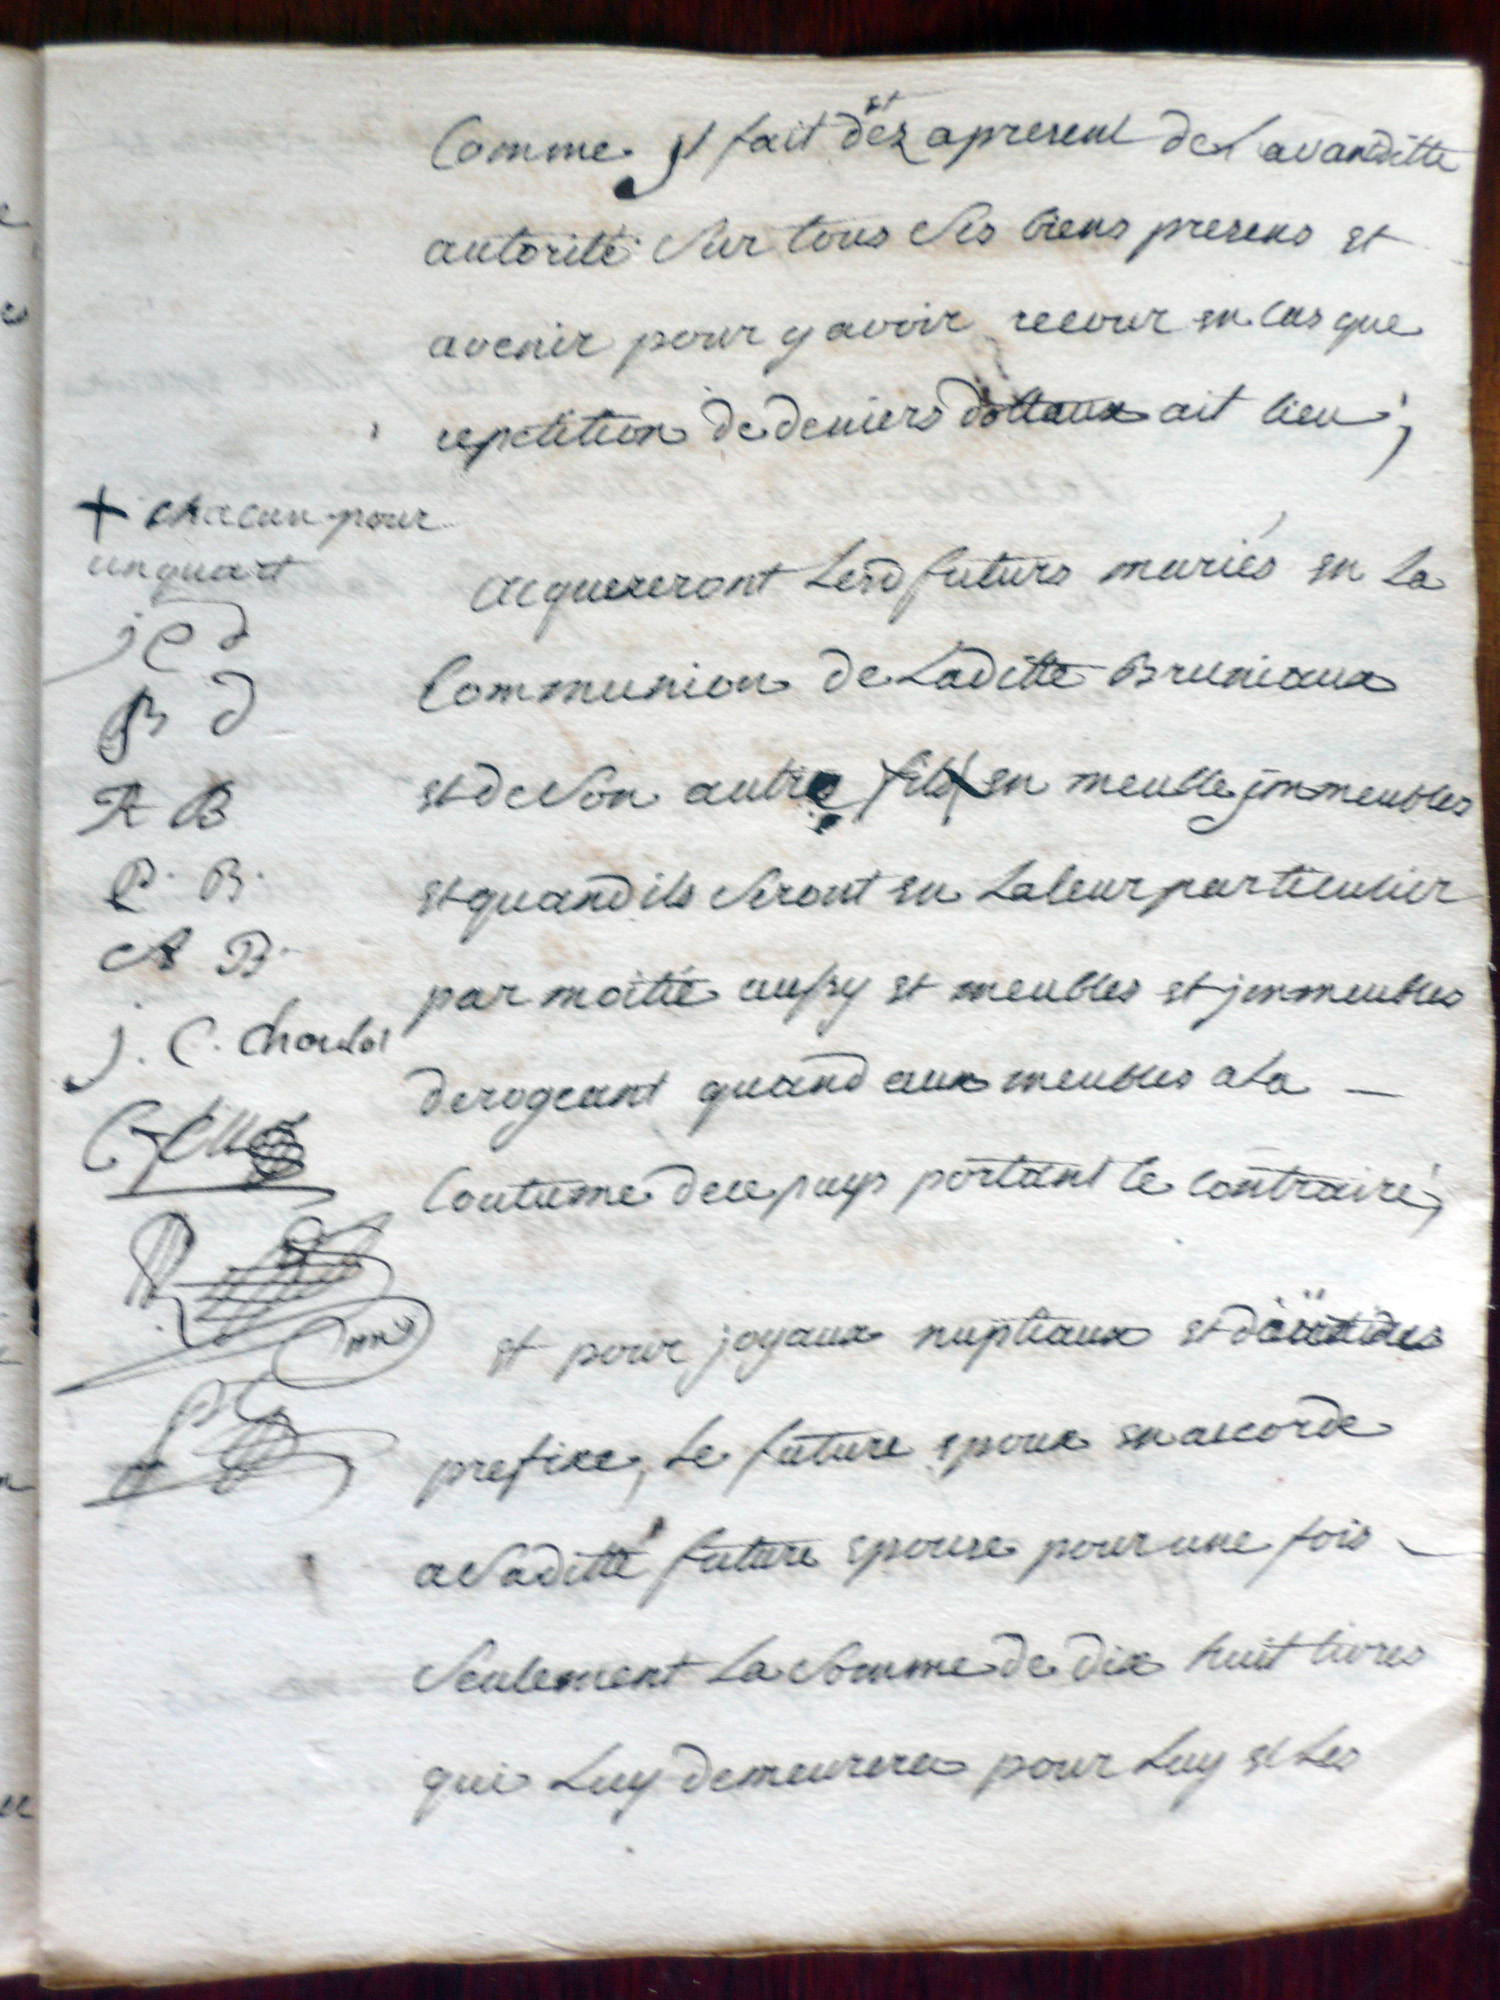 Comme jl fait et déz apresent de Lavanditte
autorité Sur tous Ses biens presens et
avenir pour y avoir recour en Cas que
repetition de deniers dottaux ait lieu ;
+ chacun pour
un quart
j C d
B d
A B
P. B.
A B.
j. C. Choulot
acquereront Lesd futurs mariés en La
Communion de Laditte Bruniaux
et de Son autre fils + en meuble jmmeubles
et quand ils Seront en Laleur particulier
par moitié aussy et meubles et jmmeubles
derogeant quand aux meubles a La —
Coutume de ce pays portant le Contraire,
et pour joyaux nuptiaux et
prefixe, Le future epoux en accorde
a Saditte future epouse pour une fois
Seulement La Somme de dix huit livres
qui Luy demeurera pour Luy et Les